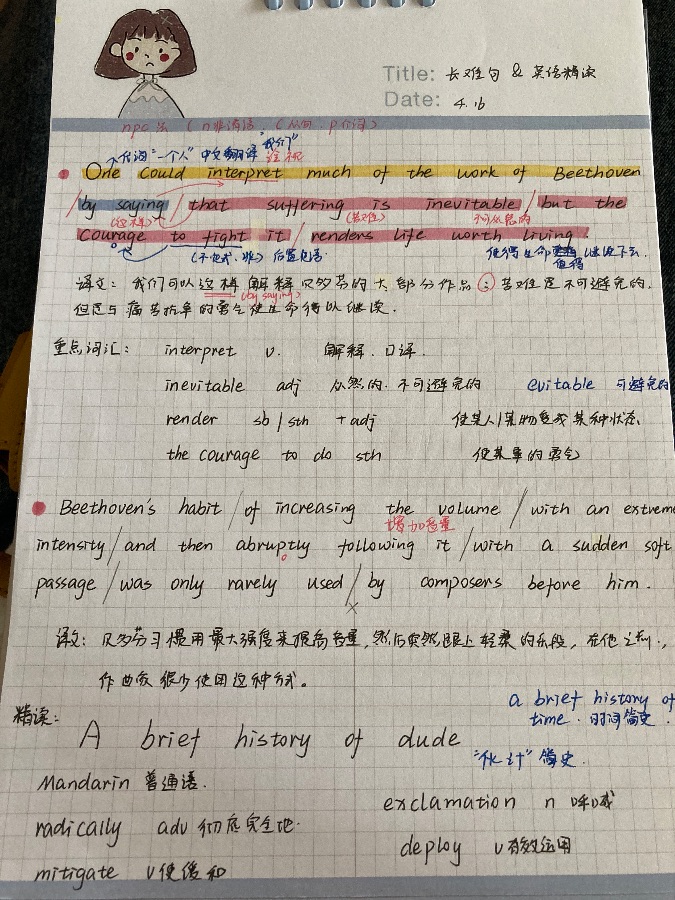 Title: 长难句 & 英语精读
Date: 4.16
npc法 (n非谓语 (从句. p介词)
代词"一个人" 中文翻译"我们"
诠释
One could interpret much of the work of Beethoven
by saying / that suffering is inevitable / but the
(这样) (苦难) 不可避免的
courage to fight it / renders life worth living.
(不定式、准) 后置 使得生命 值得 继续下去.
译文: 我们可以这样解释贝多芬的大部分作品: 苦难是不可避免的.
(by saying)
但是与痛苦抗争的勇气使生命得以继续.
重点词汇: interpret v. 解释. 口译.
inevitable adj 必然的. 不可避免的 evitable 可避免的
render sb / sth + adj 使某人/某物变成某种状态.
the courage to do sth 做某事的勇气
Beethoven's habit / of increasing the volume / with an extreme
增加音量
intensity / and then abruptly following it / with a sudden soft
passage / was only rarely used / by composers before him.
译文: 贝多芬习惯用最大强度来提高音量, 然后突然跟上轻柔的乐段, 在他之前.,
作曲家很少使用这种方式。
精读:
a brief history of
time. 时间简史.
A brief history of dude
"伙计"简史.
Mandarin 普通话.
exclamation n 呼喊
radically adv 彻底完全地.
deploy v 有效运用
mitigate v 使缓和